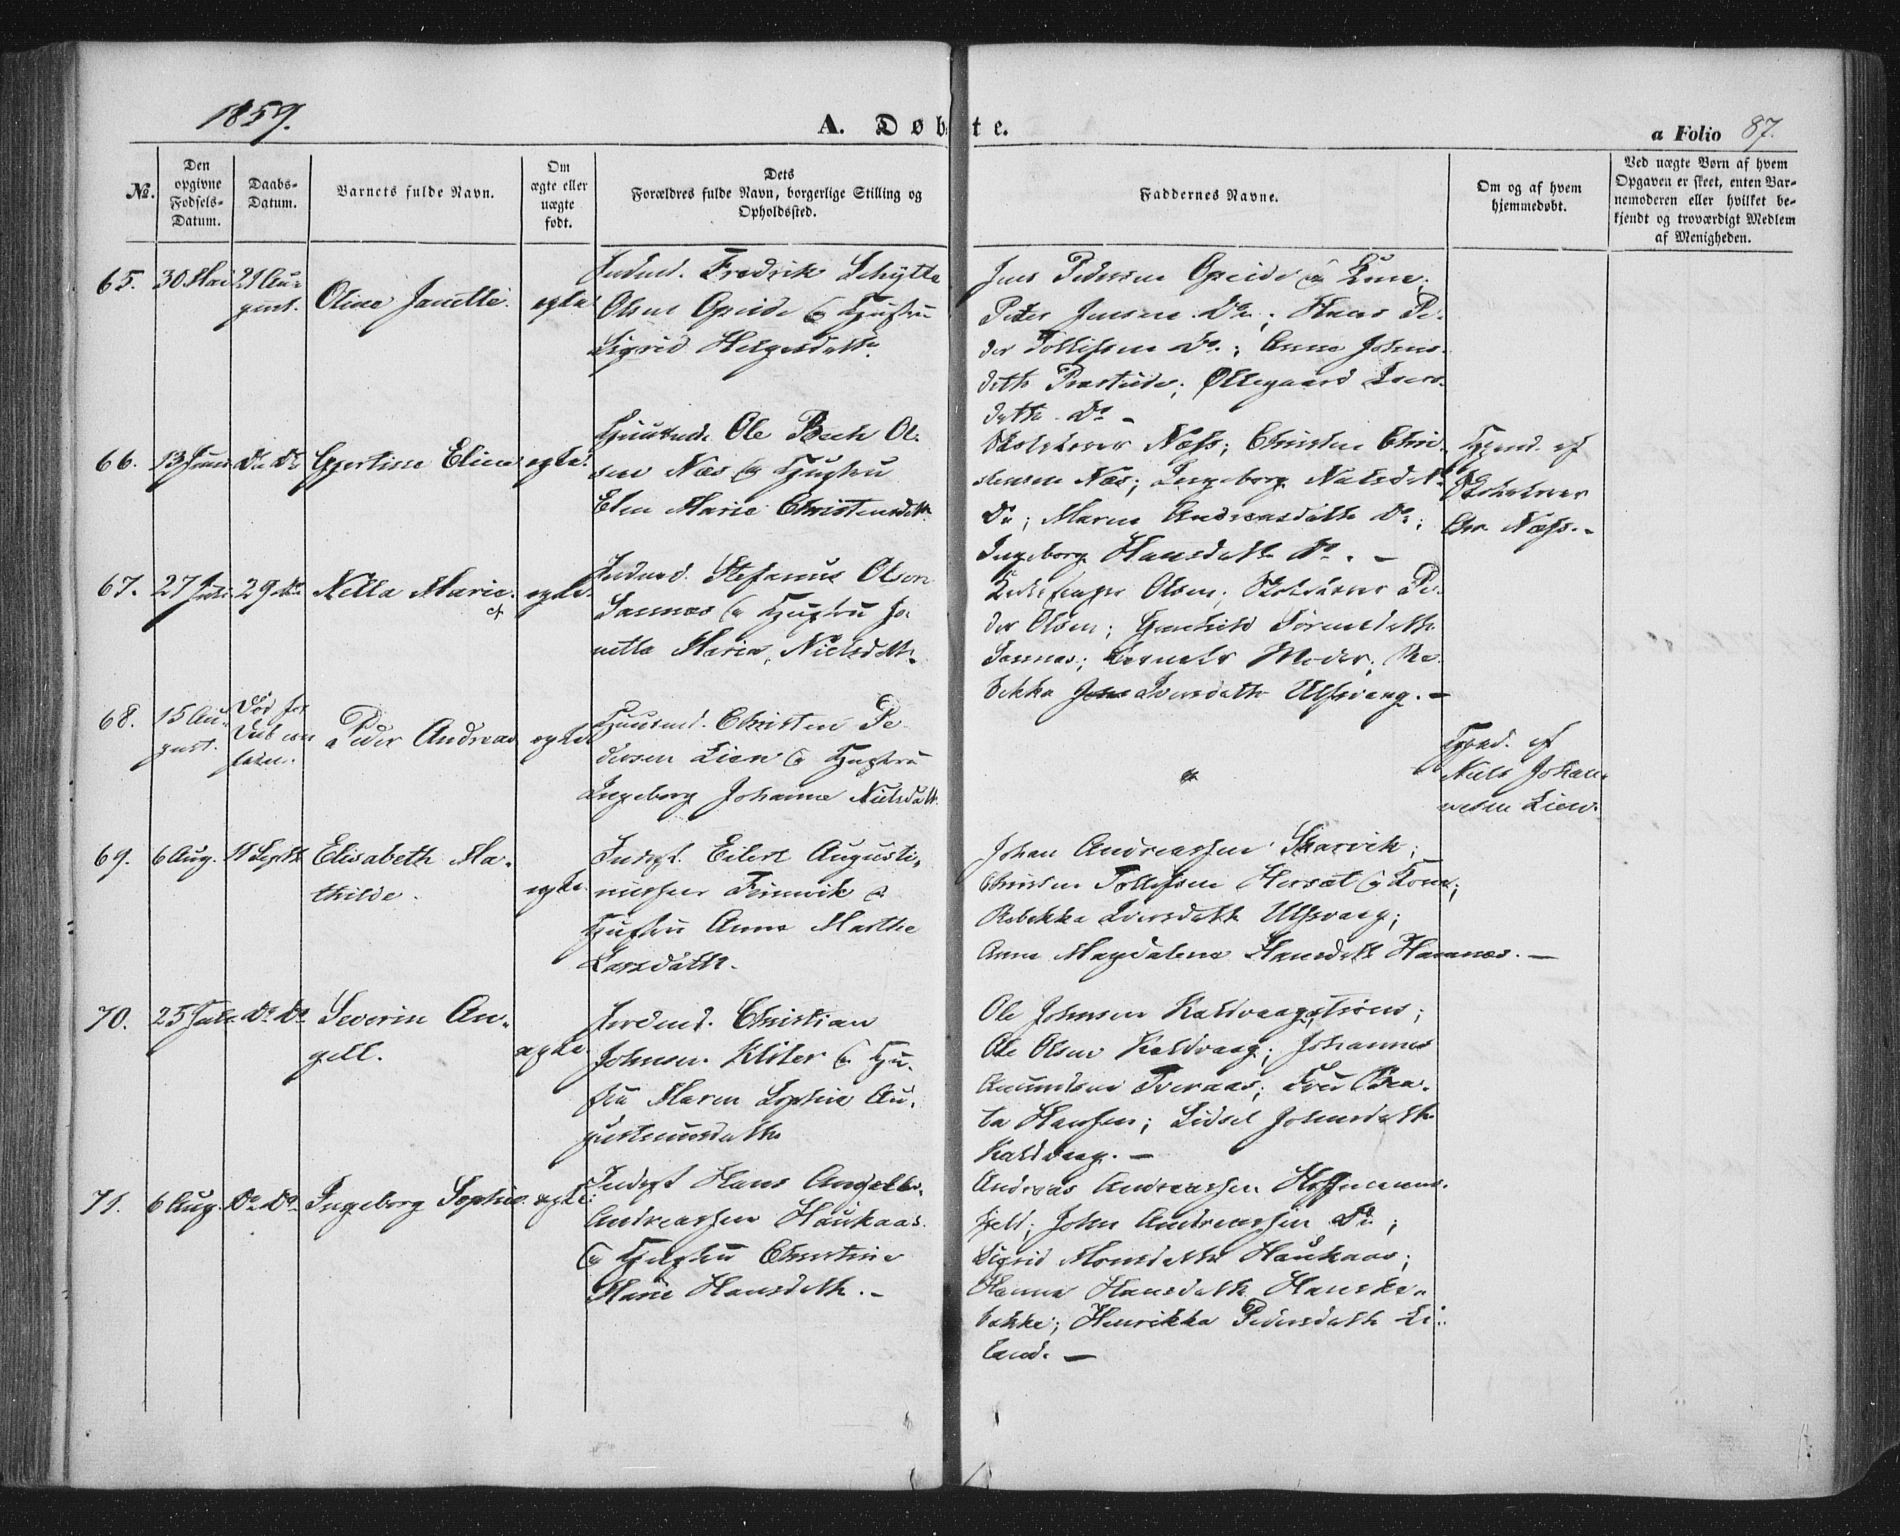 1859.
A. Døbte.
a Folio 87.
No.
Den opgivne Fødsels-Datum.
Daabs-Datum.
Barnets fulde Navn.
Om ægte eller uægte født.
Dets Forældres fulde Navn, borgerlige Stilling og Opholdssted.
Faddernes Navne.
Om og af hvem hjemmedøbt.
Ved uægte Børn af hvem Opgaven er skeet, enten Barnemoderen eller hvilket bekjendt og troværdigt Medlem af Menigheden.
65. 30 Mai 21 Au-
gust. Oline Janette. ægte
Fredrik Schytte
Olsen Opeide & Hustru
Sigrid Helgesdatte.
Jens Pedersen Opeide & Kone;
Peter Jensen Do.; Hans Pe-
der Tollefsen Do.; Anne Johns-
datte Presteide; Ollegaard Ivers-
datte Do –
66. 13 Juni Do Do Eline ægte
Huusmd. Ole Bech Ol-
sen Næs & Hustru
Elen Marie Christensdatt.
Skolelærer Næss; Christen Chri-
stensen Næs; Ingeborg Nielsdatt
Do; Maren Andreasdatte Do;
Ingeborg Hansdatte Do. –
Hjemd. af
Skolelærer
Chr. Næss. –
67. 27 29 Do Nella Marie. ægte.
Stefanus Olsen
Sannes & Hustru Ja-
netta Maria Nielsdatte.
Kirkesanger Olsen; Skolelærer Pe-
der Olsen; Gunhild Sørensdatte
Sannes; Barnets Moder; Re-
bekka Iversdatte Ulsvaag. –
68. 15 Au-
gust. Død før
Daaben
Peder Andreas ægte
Huusmd. Christen Pe-
dersen Lien & Hustru
Ingeborg Johanna Nielsdatt.
Hjemd. af
Niels Johan-
nesen Lien.
69. 6 Aug. 11 Septb Elisabeth Ma-
thilde. ægte.
Inders. Eilert Augusti-
nussen Finnvik &
Hustru Anne Marthe
Larsdatte.
Johan Andreassen Skarvik;
Christen Tollefsen Hersæt & Kone;
Rebekka Iversdatte Ulsvaag;
Anne Magdalena Hansdatt Hamnes. –
70. 25 Juli Do Do Severin An-
gell. ægte.
Christian
Johnsen Kliter & Hu-
stru Maren Sophie Au-
gustinusdatte
Ole Johnsen Kaldvaag;
Ole Olsen Kaldvaag; Johannes
Amundsen Tveraas; Fru Bea-
ta Hansen; Sidsel Johnsdatte
Kaldvaag. –
71. 6 Aug. Do Do Ingeborg Sophie. ægte
Inders Hans Angell
Andreassen Haukaas
& Hustru Christine
Marie Hansdatte. –
Andreas Andreassen Hoffmanns-
feld; John Andreassen Do;
Sigrid Monsdatte Haukaas;
Hanna Hansdatte Hanske-
bakke; Henrikka Pedersdatte Li-
land. –